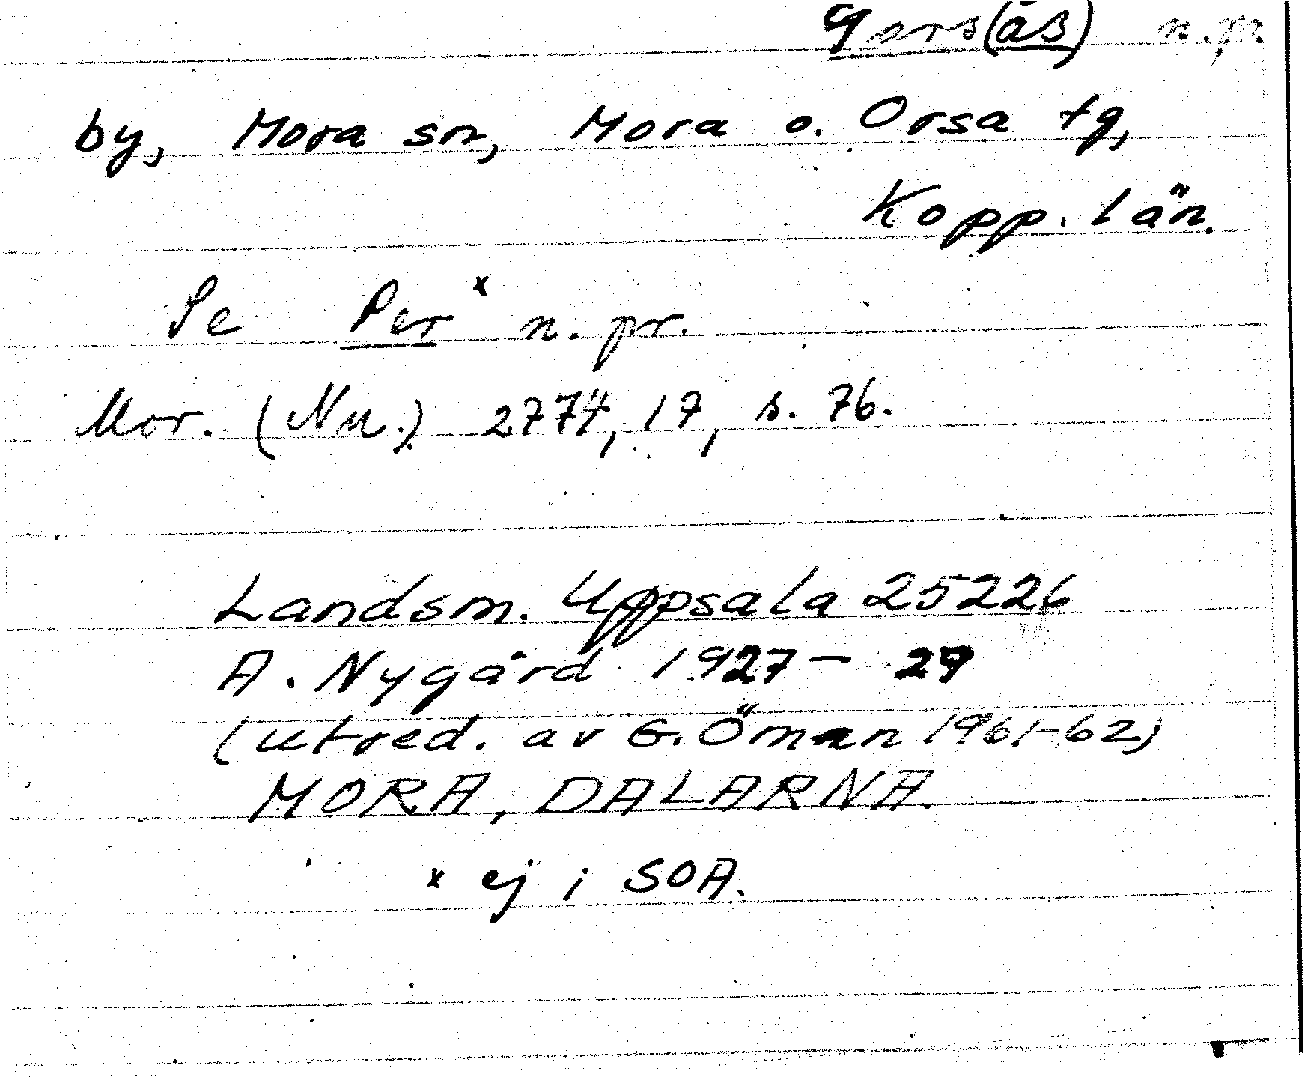 (ås) n.pr.
by, Mora sn, Mora o. Orsa tg,
Kopp. län.
Se Per x n. pr.
Mor. (Nu.) 2774, 17, s. 76.
Landsm. Uppsala 25226
A. Nygård 1927 – 29
(utred. av G. Öman 1961-62)
MORA, DALARNA.
x ej i SOA.